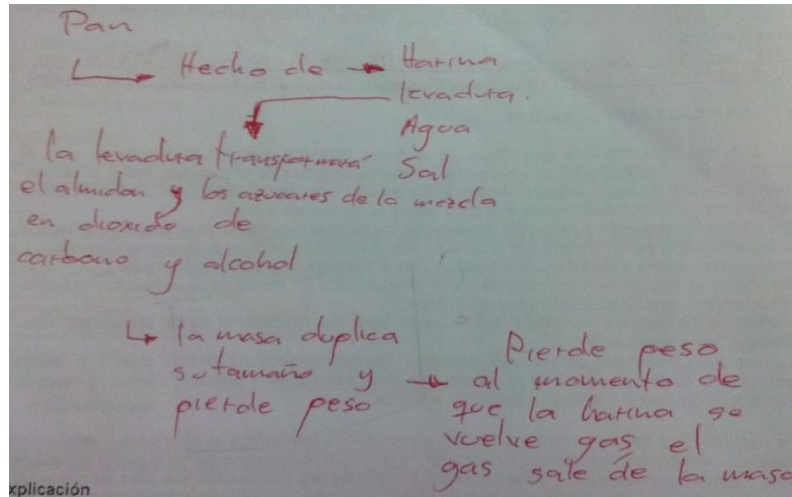 Pan
Hecho de → Harina
levadura.
Agua
Sal
la levadura transformará
el almidon y los azucares de la mezcla
en dioxido de
carbono y alcohol
la masa duplica
su tamaño y
pierde peso
Pierde peso
al momento de
que la harina se
vuelve gas el
gas sale de la masa
xplicación